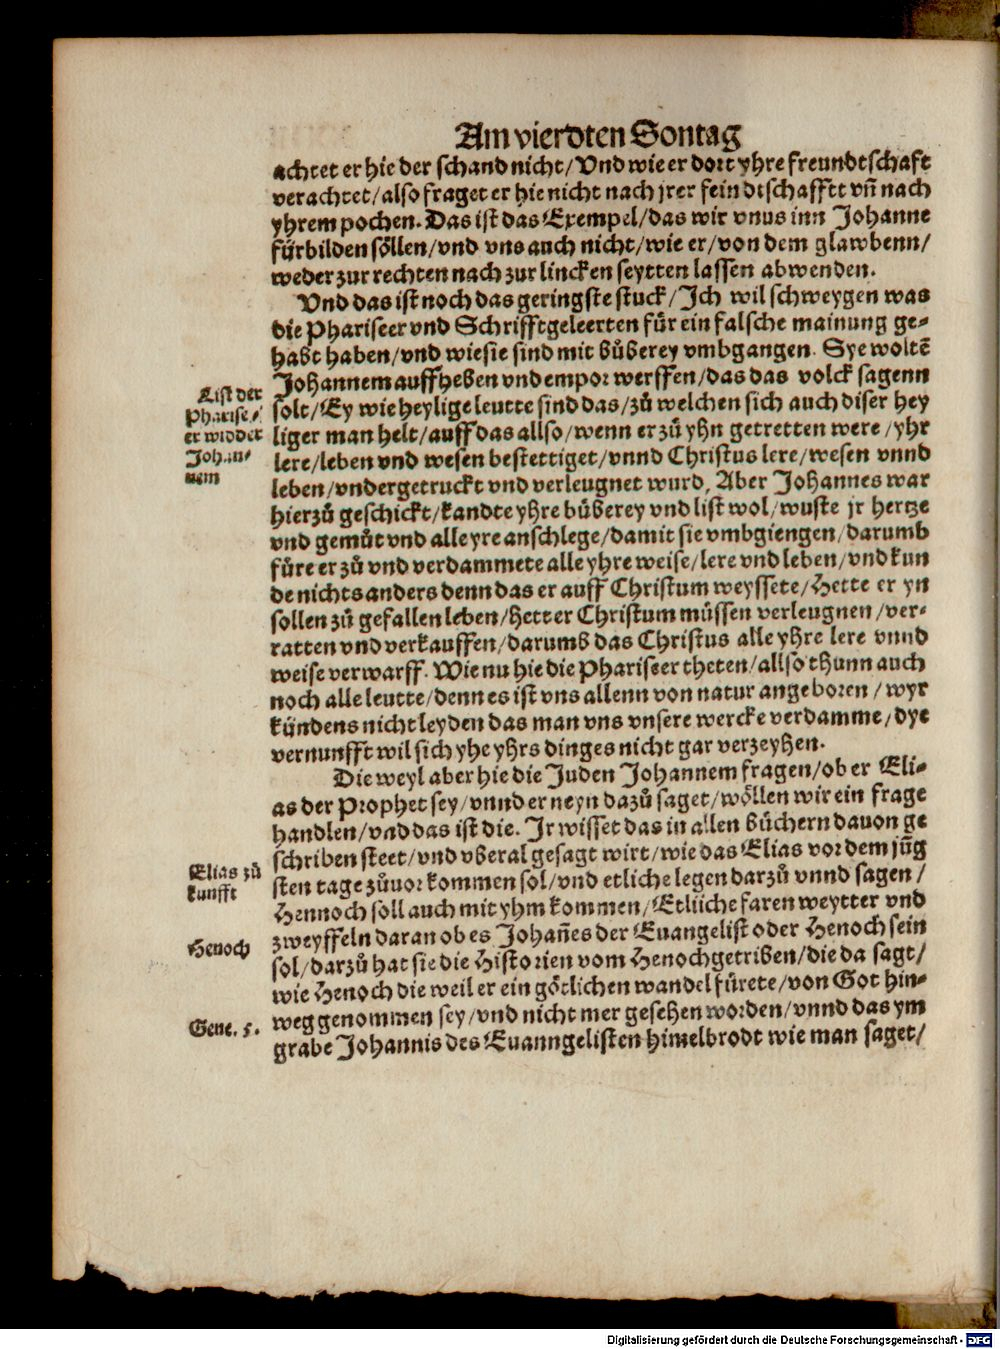 Am vierdten Sontag
achtet er hie der schand nicht/ Vnd wie er dort yhre freundtschaft
verachtet/ also fraget er hie nicht nach jrer feindtschafft vñ nach
yhrem pochen. Das ist das Exempel/ das wir vnus inn Johanne
fürbilden söllen/ vnd vns auch nicht/ wie er/ von dem glawbenn/
weder zur rechten nach zur lincken seytten lassen abwenden.
Vnd das ist noch das geringste stuck/ Ich wil schweygen was
die Phariseer vnd Schrifftgeleerten für ein falsche mainung ge-
habt haben/ vnd wie sie sind mit bůberey vmbgangen. Sye woltē
Johannem auffheben vnd empor werffen/ das das volck sagenn
solt/ Ey wie heylige leutte sind das/ zů welchen sich auch diser hey
liger man helt/ auff das allso/ wenn er zů yhn getretten were/ yhr
lere/ leben vnd wesen bestettiget/ vnnd Christus lere/ wesen vnnd
leben/ vndergetruckt vnd verleugnet wurd. Aber Johannes war
hierzů geschickt/ kandte yhre bůberey vnd list wol/ wuste jr hertze
vnd gemůt vnd alle yre anschlege/ damit sie vmbgiengen/ darumb
fůre er zů vnd verdammete alle yhre weise/ lere vnd leben/ vnd kun
de nichts anders denn das er auff Christum weyssete/ Hette er yn
sollen zů gefallen leben/ hett er Christum müssen verleugnen/ ver-
ratten vnd verkauffen/ darumb das Christus alle yhre lere vnnd
weise verwarff. Wie nu hie die Phariseer theten/ allso thunn auch
noch alle leutte/ denn es ist vns allenn von natur angeboren/ wyr
kündens nicht leyden das man vns vnsere wercke verdamme/ dye
vernunfft wil sich yhe yhrs dinges nicht gar verzeyhen.
Die weyl aber hie die Juden Johannem fragen/ ob er Eli-
as der Prophet sey/ vnnd er neyn dazů saget/ wöllen wir ein frage
handlen/ vnd das ist die. Jr wisset das in allen büchern dauon ge
schriben steet/ vnd vberal gesagt wirt/ wie das Elias vor dem jüg
sten tage zůuor kommen sol/ vnd etliche legen darzů vnnd sagen/
Hennoch soll auch mit yhm kommen/ Etliiche faren weytter vnd
zweyffeln daran ob es Johañes der Euangelist oder Henoch sein
sol/ darzů hat sie die Historien vom Henoch getriben/ die da sagt/
wie Henoch die weil er ein götlichen wandel fürete/ von Got hin-
weg genommen sey/ vnd nicht mer gesehen worden/ vnnd das ym
grabe Johannis des Euanngelisten himelbrodt wie man saget/
List der
Pharise-
er widder
Johan-
nem
Elias zů
kunfft
Henoch
Gene. 5.
Digitalisierung gefördert durch die Deutsche Forschungsgemeinschaft - DFG